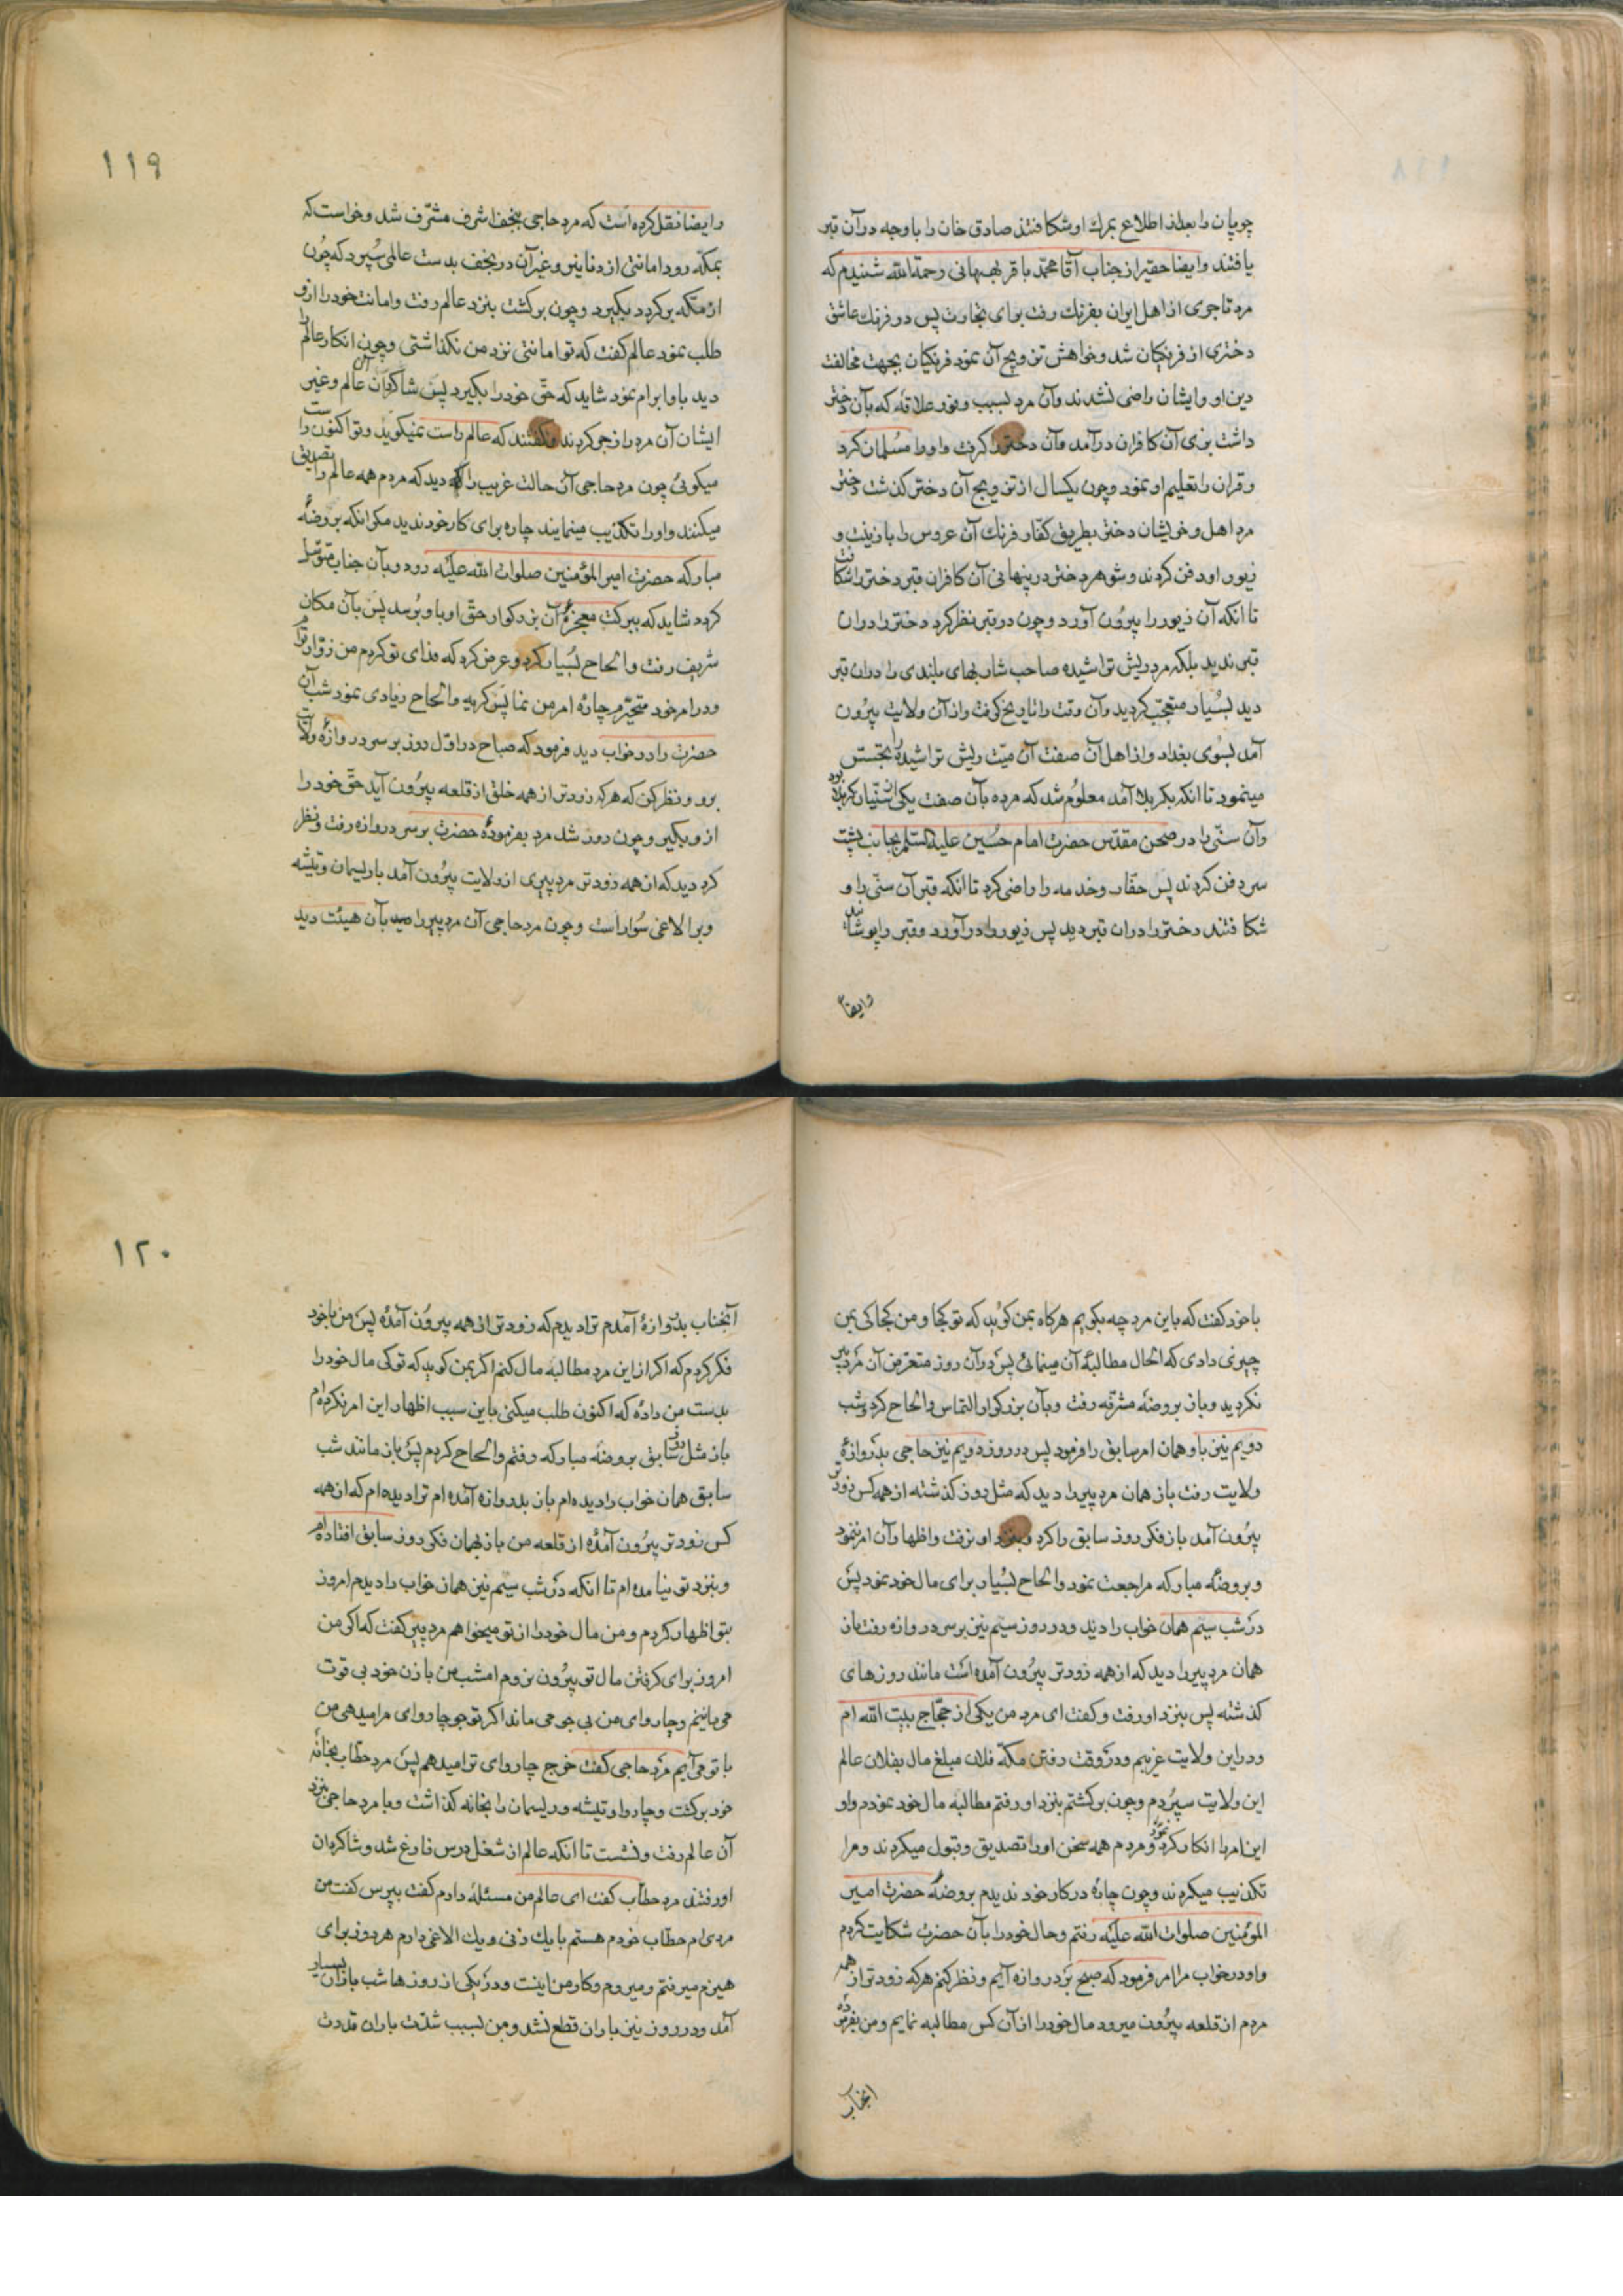 چوپان را بعد از اطلاع بمرك او شكافتند صادق خان را با وجه در آن قبر
یافتند وایضا حقیر از جناب آقا محمد باقر بهبهانی رحمة الله شنیدم که
مرد تاجری از اهل ایران بفرنك رفت برای تجارت پس در فرنك عاشق
دختری از فرنكیان شد وخواهش تزویج آن نمود فرنكیان بجهت مخالفت
دین او وایشان راضی نشدند وآن مرد بسبب وفور علاقه که بآن دختر
داشت بزی آن کافران در آمد وآن دختر را كرفت واورا مسلمان کرد
وقران را تعلیم او نمود وچون یكسال از تزویج آن دختر كذشت دختر
مرد اهل وخویشان دختر بطریق كفار فرنك آن عروس را با زینت و
زیور او دفن كردند وشوهر دختر در پنهانی آن كافران قبر دختر را شكافت
تا انكه آن زیور را بیرون آورد وچون در قبر نظر كرد دختر را در ان
قبر ندید بلكه مرد ریش تراشیده صاحب شاربهای بلندی را در ان قبر
دید بسیار متعجب كردید وآن وقت را تاریخ كرفت واز آن ولایت بیرون
آمد بسوی بغداد واز اهل آن صفت آن میت ریش تراشیده را تجسس
مینمود تا انكه بكربلا آمد معلوم شد كه مرده بآن صفت یكی از سنیان كربلا بود
وآن سنی را در صحن مقدس حضرت امام حسین علیه السلم بجانب پشت
سر دفن كردند پس حفار وخدمه را راضی كرد تا انكه قبر آن سنی را و
شكافتند دختر را در ان قبر دید پس زیور را در آورد وقبر را پوشاند
وایضا
۱۱۹
وایضا نقل كرده است كه مرد حاجی بنجف اشرف مشرف شد وخواست كه
بمكه رود امانتی از دنانیر وغیر آن در نجف بدست عالمی سپرد كه چون
از مكه بركردد بكیرد وچون بركشت بنزد عالم رفت وامانت خود را ازو
طلب نمود عالم كفت كه تو امانتی نزد من نكذاشتی وچون انكار عالم را
دید باو ابرام نمود شاید كه حق خود را بكیرد پس شاكردان آن عالم وغیر
ایشان آن مرد را زجر كردند وكفتند كه عالم راست نمیكوید وتو اكنون راست
میكوئی چون مرد حاجی آن حالت غریب را دید كه مردم همه عالم را تصدیق
میكنند واورا تكذیب مینمایند چاره برای كار خود ندید مكر انكه بروضۀ
مباركه حضرت امیر المؤمنین صلوات الله علیه رود وبآن جناب متوسل
كردد شاید كه ببركت معجزۀ آن بزركوار حق او باو برسد پس بآن مكان
شریف رفت والحاح بسیار كرد وعرض كرد كه فدای تو كردم من زوار توام
ودر امر خود متحیرم چارۀ امر من نما پس كریه والحاح زیادی نمود شب آن
حضرت را در خواب دید فرمود كه صباح در اول روز بر سر دروازۀ ولایت
برو ونظر كن كه هر كه زودتر از همه خلق از قلعه بیرون آید حق خود را
از و بكیر وچون روز شد مرد بفرمودۀ حضرت بر سر دروازه رفت ونظر
كرد دید كه از همه زودتر مرد پیری از ولایت بیرون آمد با ریسمان وتیشه
وبر الاغی سوار است وچون مرد حاجی آن مرد پیر را بآن هیئت دید
با خود كفت كه باین مرد چه بكویم هركاه بمن كوید كه تو كجا ومن كجا كی بمن
چیزی دادی كه الحال مطالبۀ آن مینمائی پس در آن روز متعرض آن مرد پیر
نكردید وباز بروضه مشرفه رفت وبآن بزركوار التماس والحاح كرد وشب
دویم نیز باو همان امر سابق را فرمود پس در روز دویم نیز حاجی بدروازۀ
ولایت رفت باز همان مرد پیر را دید كه مثل روز كذشته از همه كس زودتر
بیرون آمد باز فكر روز سابق را كرد وبنزد او نرفت واظهار آن امر ننمود
وبروضه مباركه مراجعت نمود والحاح بسیار برای مال خود نمود پس
در شب سیم همان خواب را دید ودر روز سیم نیز بر سر دروازه رفت باز
همان مرد پیر را دید كه از همه زودتر بیرون آمده است مانند روزهای
كذشته پس بنزد او رفت وكفت ای مرد من یكی از حجاج بیت الله ام
ودر این ولایت غریبم ودر وقت رفتن مكه فلان مبلغ مال بفلان عالم
این ولایت سپردم وچون بركشتم بنزد او رفتم مطالبه مال خود نمودم واو
این امر را انكار كرد ومردم همه سخن اورا تصدیق وقبول میكردند ومرا
تكذیب میكردند وچون چارۀ در كار خود ندیدم بروضۀ حضرت امیر
المؤمنین صلوات الله علیه رفتم وحال خود را بآن حضرت شكایت كردم
واو در خواب مرا امر فرمود كه صبح بر دروازه آیم ونظر كنم هر كه زودتر از همه
مردم از قلعه بیرون میرود مال خود را از آن كس مطالبه نمایم ومن بفرمودۀ
انجناب
۱۲۰
آنجناب بدروازۀ آمدم ترا دیدم كه زودتر از همه بیرون آمدۀ پس من با خود
فكر كردم كه اكر از این مرد مطالبه مال كنم اكر بمن كوید كه تو كی مال خود را
بدست من دادۀ كه اكنون طلب میكنی باین سبب اظهار این امر نكردم
باز مثل روز سابق بروضه مباركه رفتم والحاح كردم پس باز مانند شب
سابق همان خواب را دیده ام باز بدروازه آمده ام ترا دیده ام كه از همه
كس زودتر بیرون آمدۀ از قلعه من باز بهمان فكر روز سابق افتاده ام
وبنزد تو نیامده ام تا انكه در شب سیم نیز همان خواب را دیدم امروز
بتو اظهار كردم ومن مال خود را از تو میخواهم مرد پیر كفت كه اكر من
امروز برای كرفتن مال تو بیرون نروم امشب من با زن خود بی قوت
می مانیم وچاروای من بی جو می ماند اكر تو جو چاروای مرا میدهی من
با تو می آیم مرد حاجی كفت خرج چاروای ترا میدهم پس مرد حطاب بخانه
خود بركشت وچاروا وتیشه وریسمان را بخانه كذاشت وبا مرد حاجی بنزد
آن عالم رفت ونشست تا انكه عالم از شغل درس فارغ شد وشاكردان
او رفتند مرد حطاب كفت ای عالم من مسئلۀ دارم كفت بپرس كفت من
مردی ام حطاب خودم هستم با یك زنی ویك الاغی دارم هر روز برای
هیزم میرفتم ومیروم وكار من اینست ودر یكی از روزها شب باران بسیار
آمد ودر روز نیز باران قطع نشد ومن بسبب شدت باران قدرت